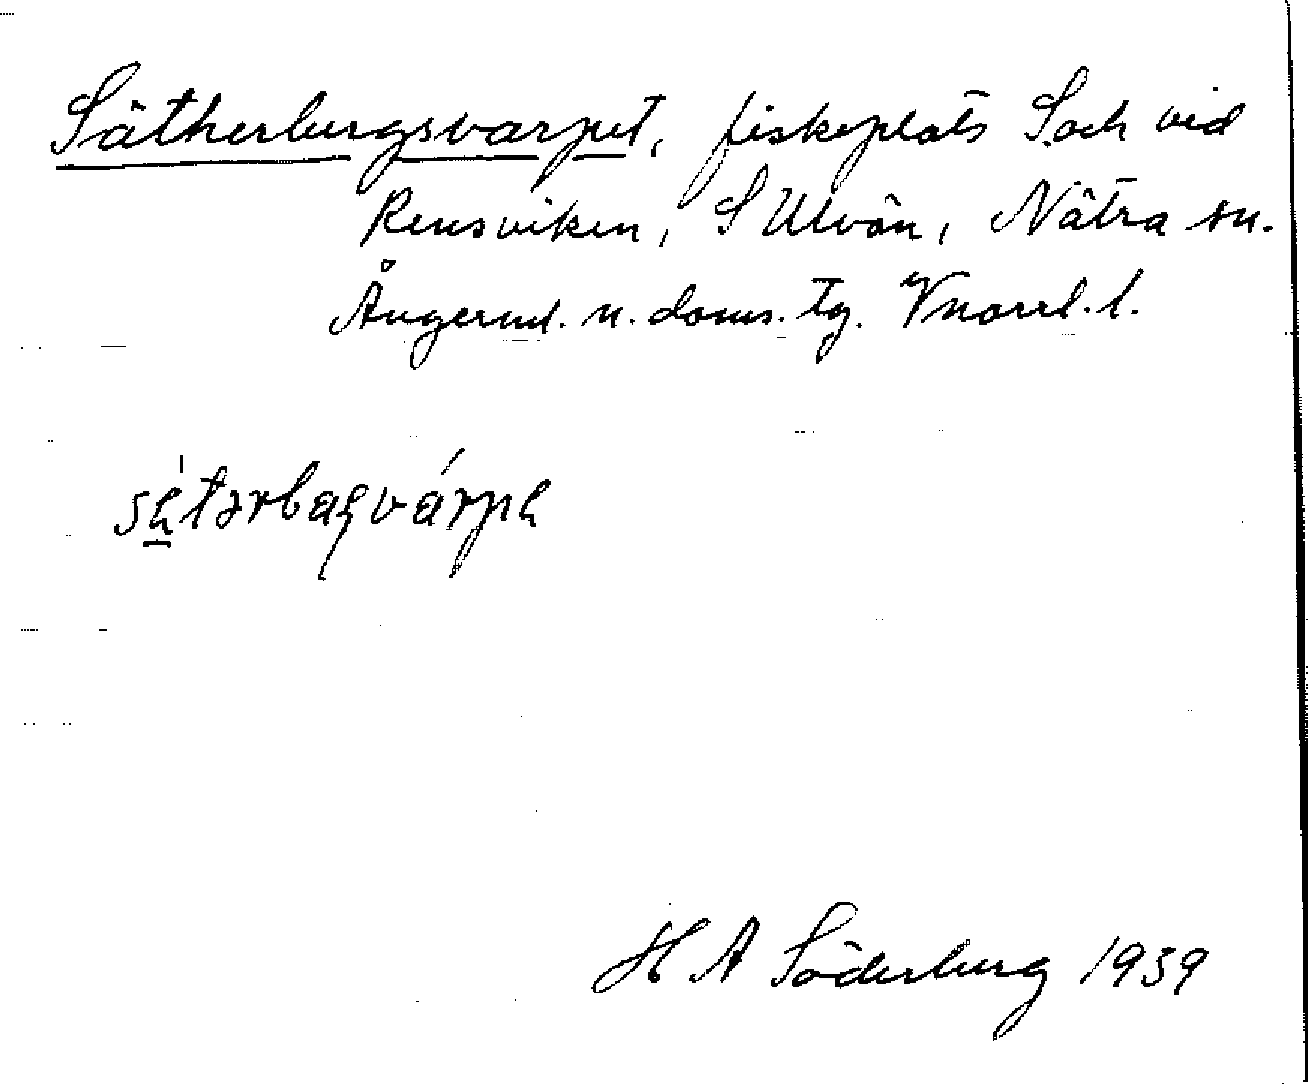 Sätherbergsvarpet, fiskeplats S och vid
Rensviken, S Ulvön, Nätra sn.
Ångerml. n. doms. tg. Vnorrl. l.
H A Söderberg 1939